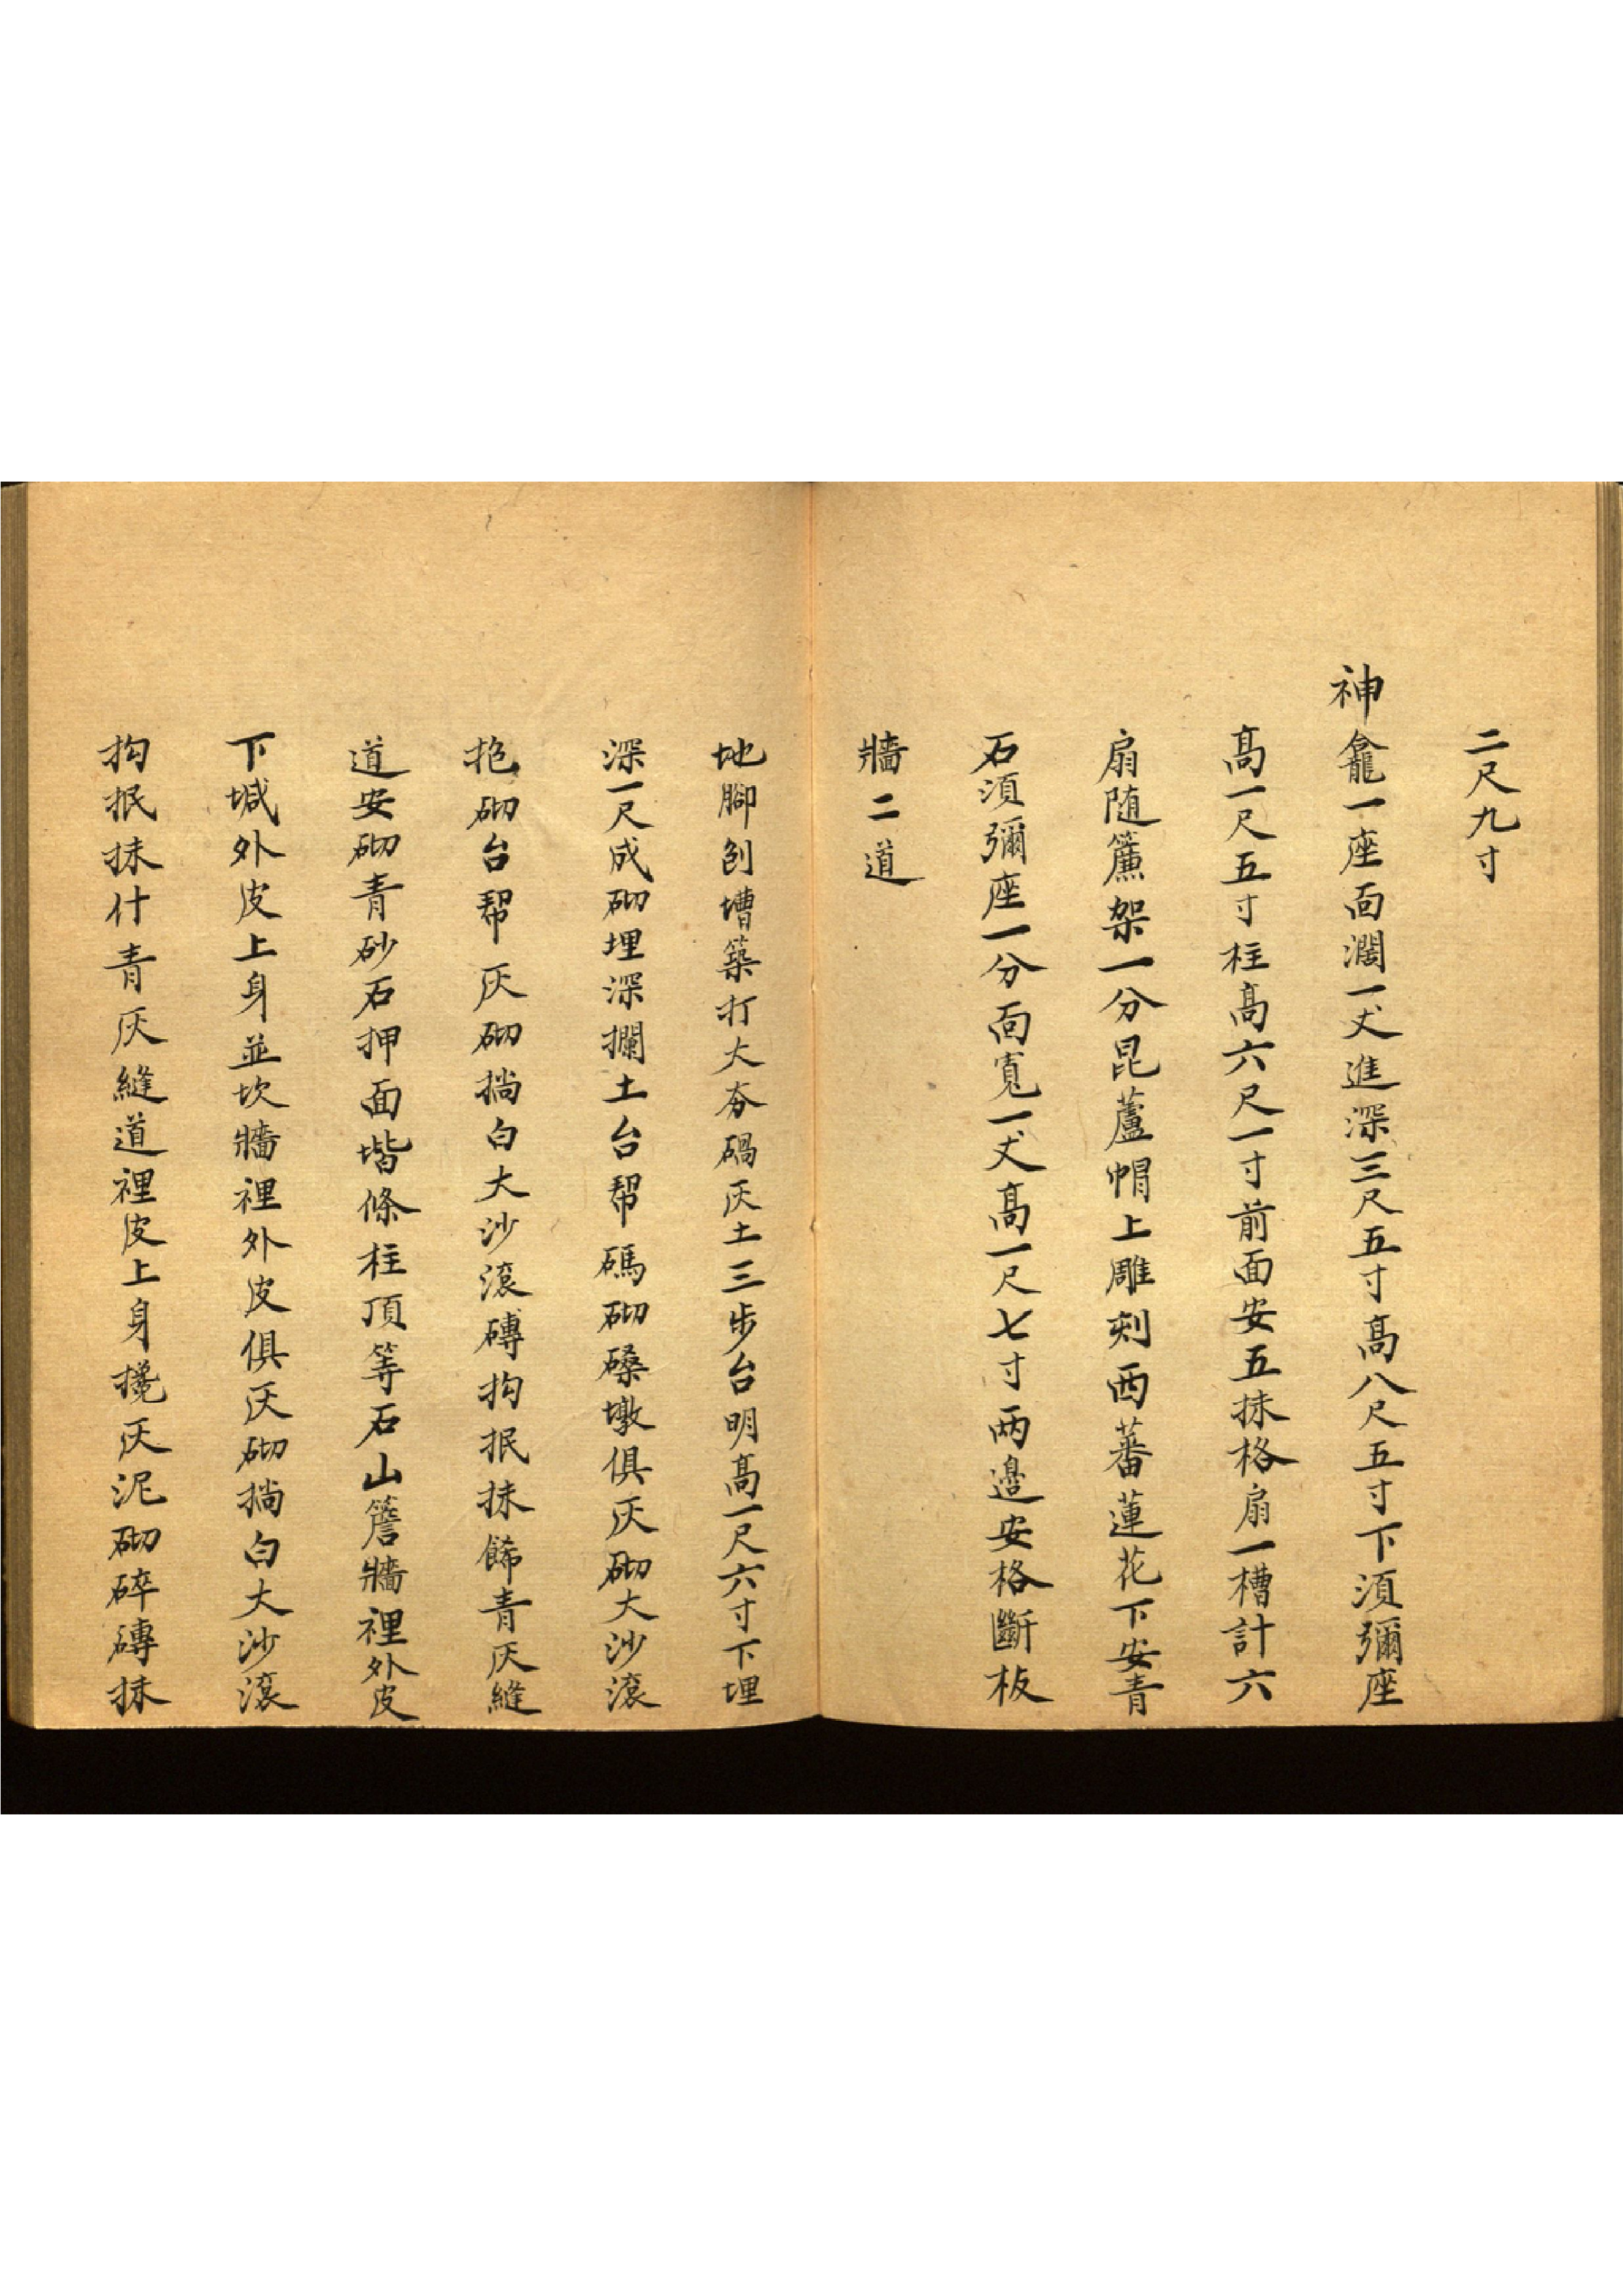 二尺九寸
神龕一座面濶一丈進深三尺五寸髙八尺五寸下湏彌座
髙一尺五寸柱髙六尺一寸前面安五抹格扇一槽計六
扇随簾架一分昆蘆帽上雕刻西蕃蓮花下安青
石湏彌座一分面寬一丈髙一尺七寸两邉安格斷板
牆二道
地腳刨槽築打大夯碢灰土三步台明髙一尺六寸下埋
深一尺成砌埋深攔土台帮碼砌磉墩俱灰砌大沙滚
砲砌台帮灰砌揣白大沙滚磚抅抿抹餙青灰縫
道安砌青砂石押面堦條柱頂等石山簷牆裡外皮
下堿外皮上身並坎牆裡外皮俱灰砌揣白大沙滚
抅抿抹什青灰縫道裡皮上身攙灰泥砌碎磚抹